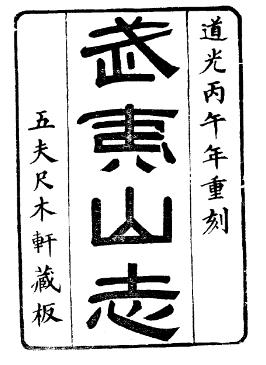 道光丙午年重刻
武夷山志
五夫尺木軒藏板